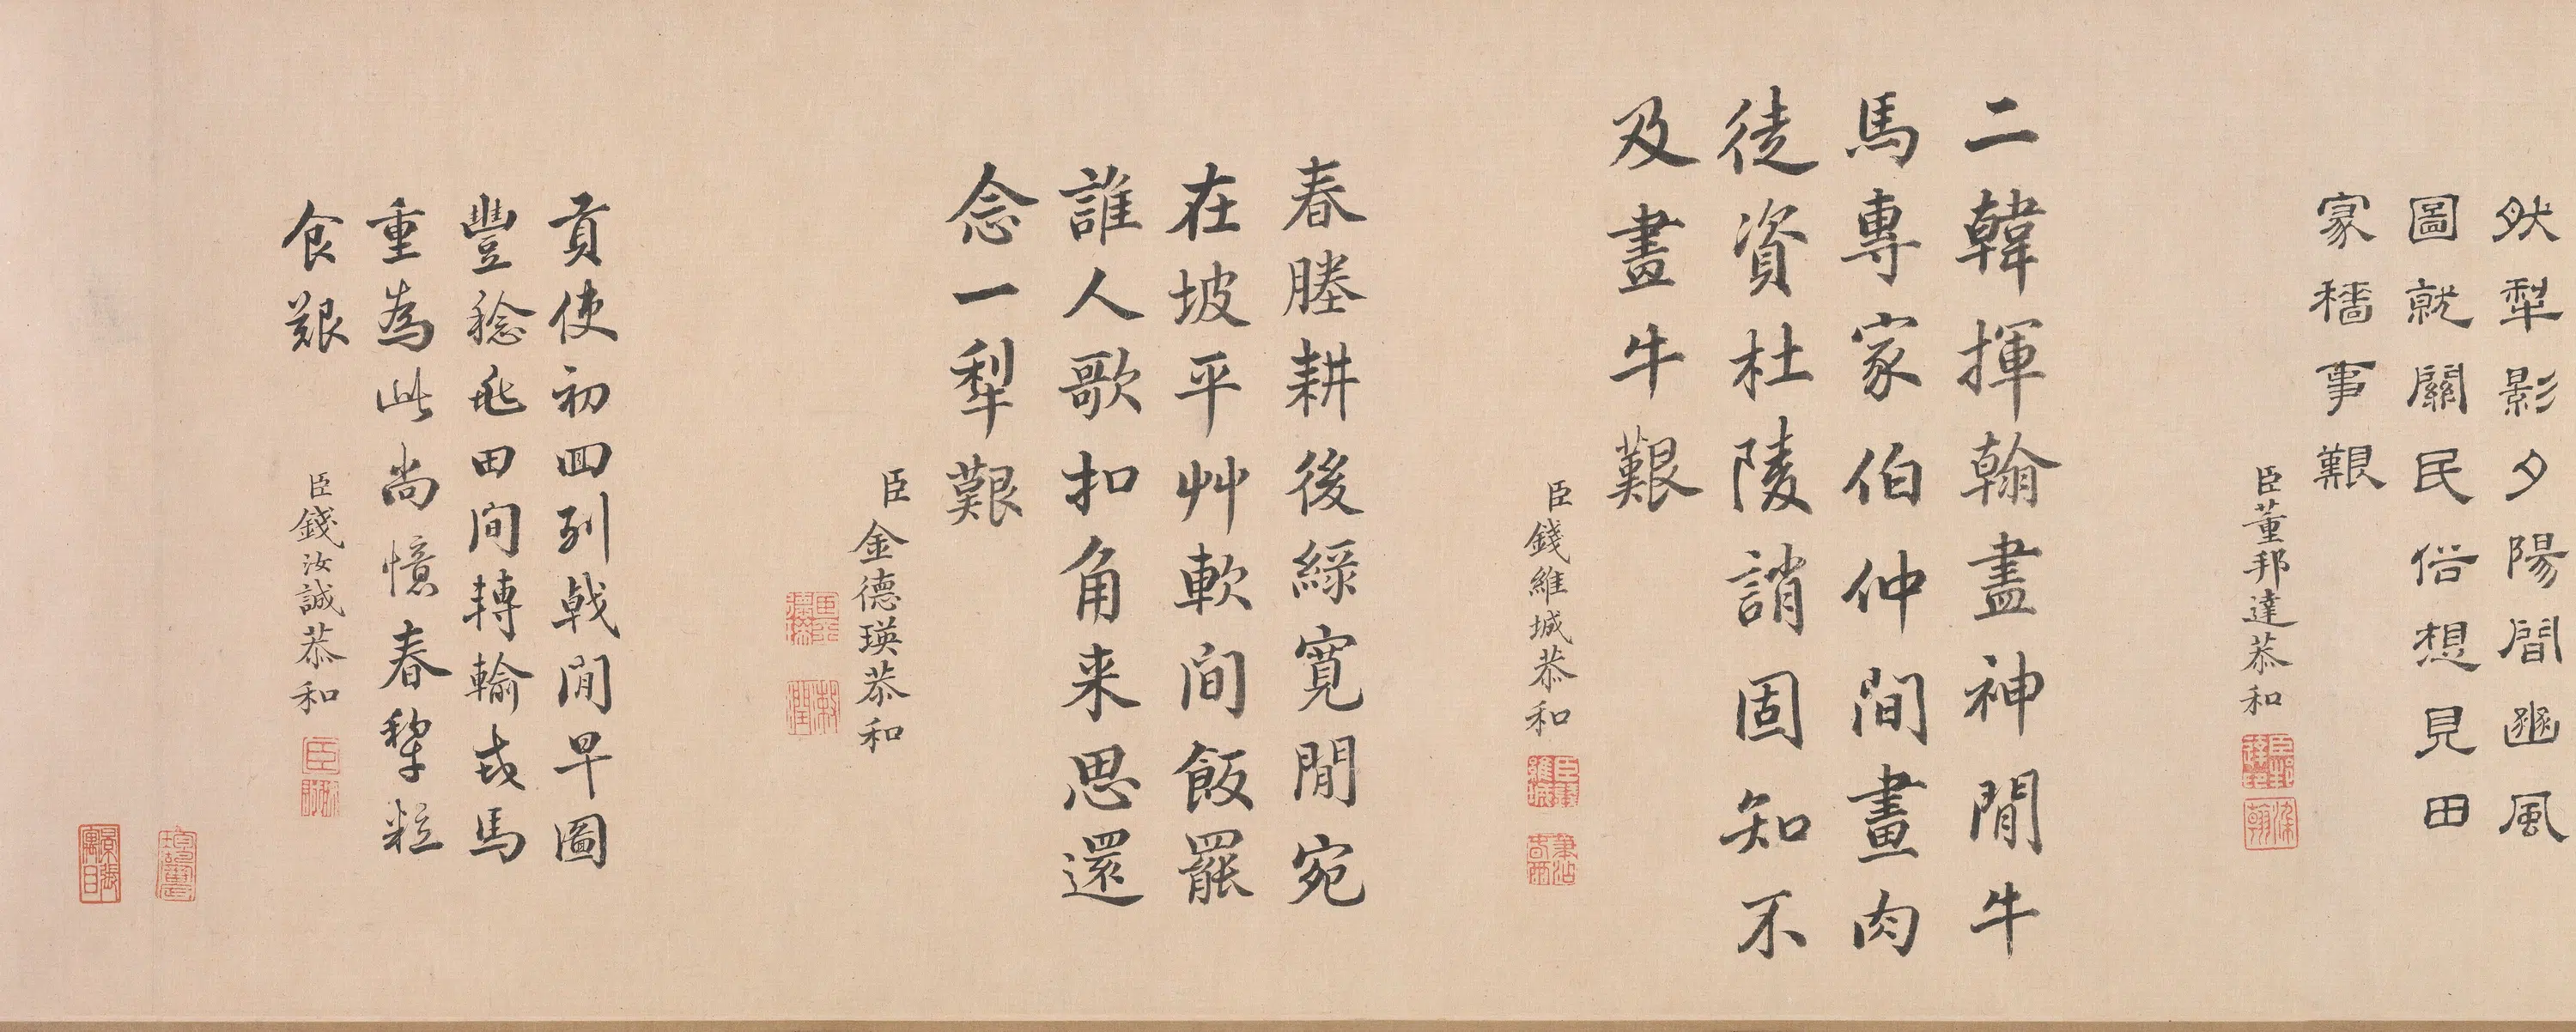 然犁影夕陽間豳風
圖就關民俗想見田
家穡事艱
臣董邦達恭和
二韓揮翰盡神閒牛
馬專家伯仲間畫肉
徒資杜陵誚固知不
及畫牛艱
臣錢維城恭和
春塍耕後綠寬閒宛
在坡平艸軟間飯罷
誰人歌扣角来思還
念一犁艱
臣金德瑛恭和
貢使初回列戟閒早圖
豐稔飛田間轉輸戎馬
重為此尚憶春犂粒
食艱
臣錢汝誠恭和